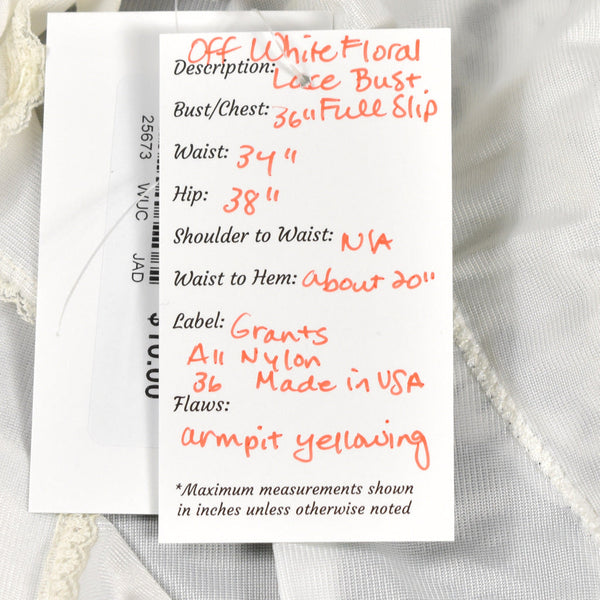 Off White Floral
Description: Lace Bust.
Bust/Chest: 36" Full Slip
Waist: 34"
Hip: 38"
Shoulder to Waist: N/A
Waist to Hem: about 20"
Label: Grants
All Nylon
36 Made in USA
Flaws:
armpit yellowing
*Maximum measurements shown
in inches unless otherwise noted
25673 WUC JAD